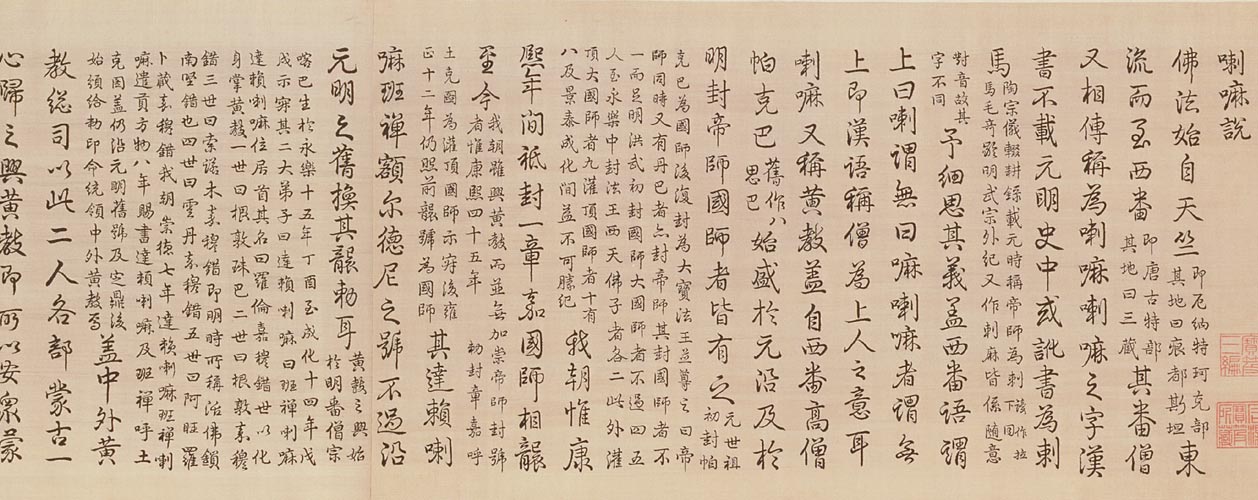 喇嘛說
佛法始自天竺即厄納特珂克部其地曰痕都斯坦東
流而至西番即唐古特部其地曰三藏其番僧
又相傳稱為喇嘛喇嘛之字漢
書不載元明史中或訛書為剌
馬陶宗儀輟耕錄載元時稱帝師為剌該作拉下同馬毛奇齡明武宗外紀又作剌麻皆係随意
對音故其字不同予細思其義蓋西番語謂
上曰喇謂無曰嘛喇嘛者謂無
上即漢語稱僧為上人之意耳
喇嘛又稱黃教蓋自西番高僧
帕克巴舊作八思巴始盛於元沿及於
明封帝師國師者皆有之元世祖初封帕
克巴為國師後復封為大寶法王並尊之曰帝師同時又有丹巴者亦封帝師其封國師者不
一而足明洪武初封國師大國師者不過四五人至永樂中封法王西天佛子者各二此外灌
頂大國師者九灌頂國師者十有八及景泰成化間益不可勝紀我朝惟康
熙年間祗封一章嘉國師相襲
至今我朝雖興黃教而並無加崇帝師封號者惟康熙四十五年勅封章嘉呼
土克圖為灌頂國師示寂後雍正十二年仍照前襲號為國師其達賴喇
嘛班禪額尔德尼之號不過沿
元明之舊換其襲勅耳黃教之興始於明番僧宗
喀巴生於永樂十五年丁酉至成化十四年戊戌示寂其二大弟子曰達賴喇嘛曰班禪喇嘛
達賴喇嘛位居首其名曰羅倫嘉穆錯世以化身掌黃教一世曰根敦珠巴二世曰根敦嘉穆
錯三世曰索諾木嘉穆錯即明時所稱活佛鎖南堅錯也四世曰雲丹嘉穆錯五世曰阿旺羅
卜藏嘉穆錯我朝崇德七年達賴喇嘛班禪喇嘛遣貢方物八年賜書達賴喇嘛及班禪呼土
克圖蓋仍沿元明舊號及定鼎後始頒給勅印命統領中外黃教焉蓋中外黃
教總司以此二人各部蒙古一
心歸之興黃教即所以安衆蒙